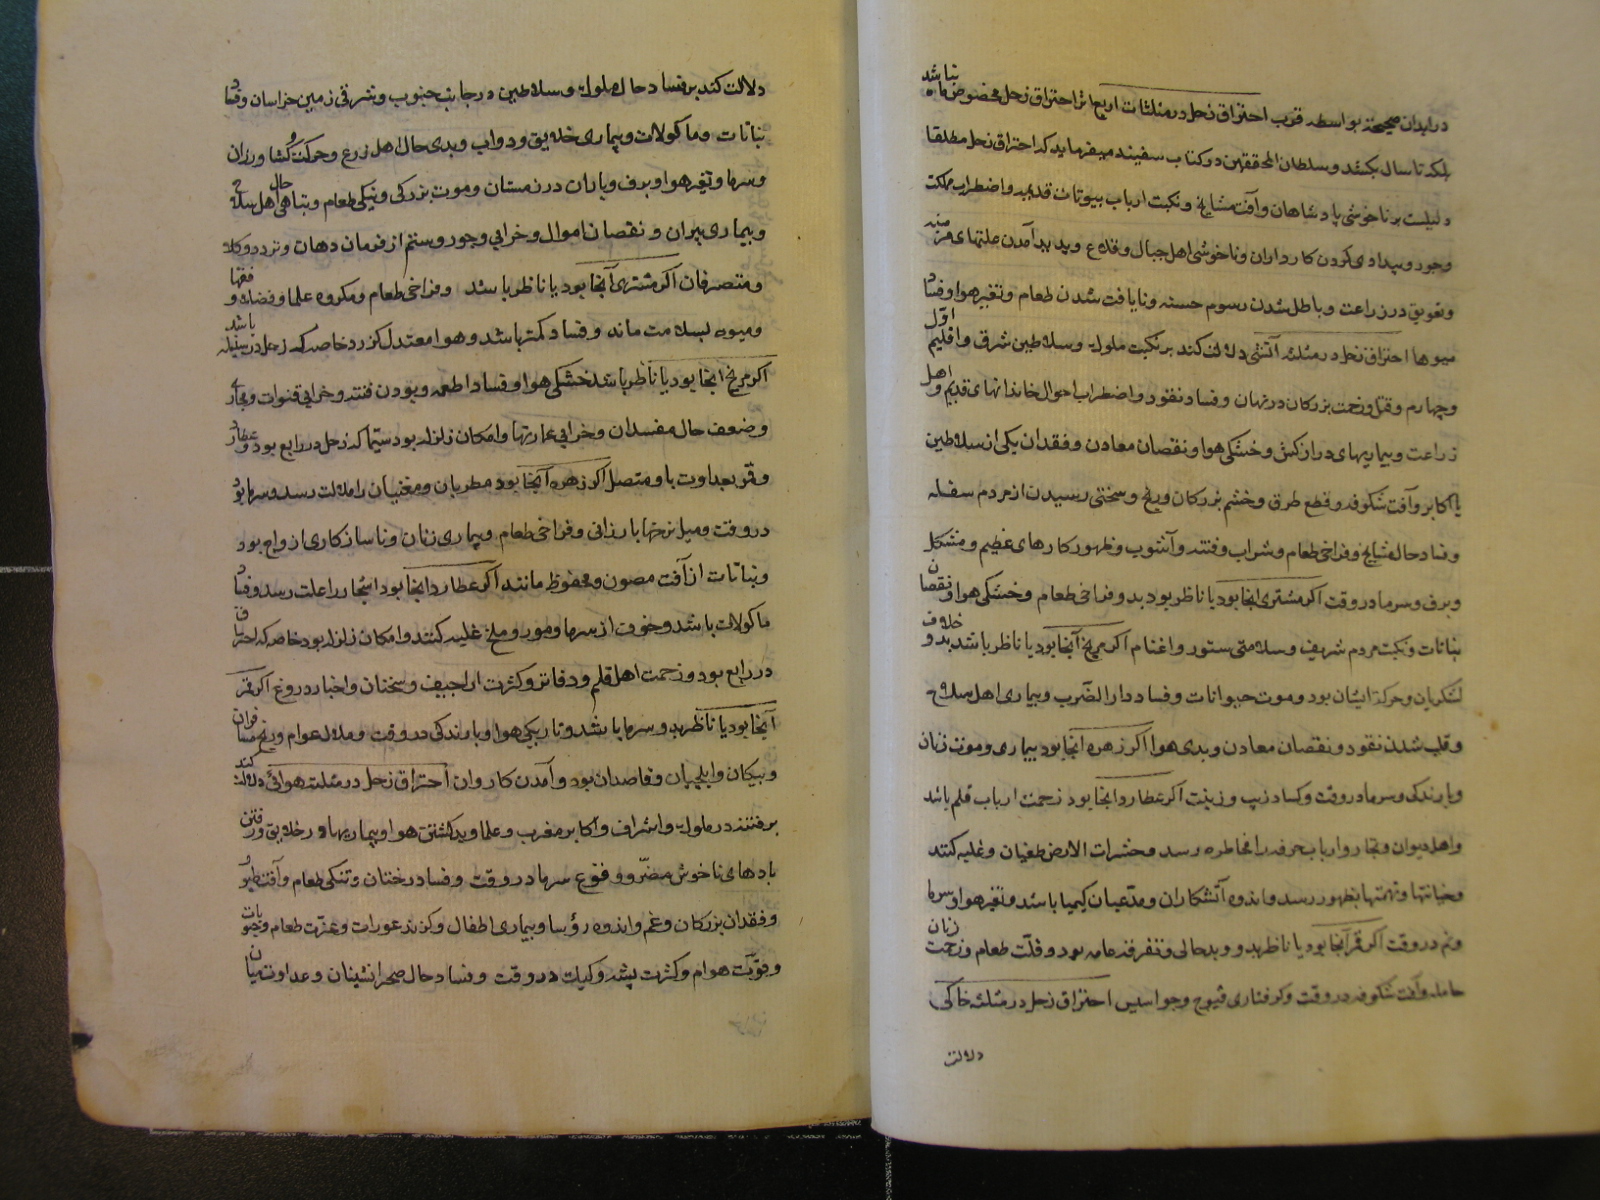 در ابدان صحیحه بواسطه قرب احتراق زحل در مثلثات اربعه اثر احتراق زحل مخصوص ماه نباشد
بلکه تا سال بکشد و سلطان المحققین در کتاب سفینه میفرماید که احتراق زحل مطلقا
دلیلست بر ناخوشی پادشاهان و آفت مشایخ و نکبت ارباب بیوتات قدیمه و اضطراب مملکت
و جور و بیدادی کردن کارداران و ناخوشی اهل جبال و قلاع و پدید آمدن علتهای مزمنه
و تعویق در زراعت و باطل شدن رسوم حسنه و نایافت شدن طعام و تغییر هوا و فساد
میوها احتراق زحل در مثلثه آتشی دلالت کند بر نکبت ملوک و سلاطین شرق و اقلیم اول
و چهارم و قتل و زحمت بزرگان در نهان و فساد نقود و اضطراب احوال خاندانهای قدیم و اهل
زراعت و بیماریهای درازکش و خشکی هوا و نقصان معادن و فقدان یکی از سلاطین
یا اکابر و آفت شکوفه و قطع طرق و خشم بزرگان و رنج و سختی رسیدن از مردم سفله
و فساد حال مشایخ و فراخی طعام و شراب و فتنه و آشوب و ظهور کارهای عظیم و مشکل
و برف و سرما در وقت اکر مشتری آنجا بود یا ناظر بود بد و فراخی طعام و خشکی هوا و نقصان
نباتات و نکبت مردم شریف و سلامتی ستور و اغنام اکر مریخ آنجا بود یا ناظر باشد بدو خلاف
لشکریان و حرکة ایشان بود و موت حیوانات و فساد دار الضرب و بیماری اهل سلاح
و قلب شدن نقود و نقصان معادن و بدی هوا اکر زهره آنجا بود بیماری و موت زنان
و بارندکی و سرما در وقت و کساد زیب و زینت اکر عطارد آنجا بود زحمت ارباب قلم باشد
و اهل دیوان و تجار و ارباب حرفه را مخاطره رسد و حشرات الارض طغیان و غلبه کنند
و خیانتها و تهمتها بظهور رسد و اندوه آتشکاران و مدعیان کیمیا باشد و تغیر هوا و سرما
و نم در وقت اکر قمر آنجا بود یا ناظر بدو و بدحالی و تفرقه عامه بود و قلت طعام و زحمت زنان
حامله و آفت شکوفه در وقت و کرفتاری فیوج و جواسیس احتراق زحل در مثلثه خاکی
دلالت
دلالت کند بر فساد حال ملوک و سلاطین در جانب جنوب و شرقی زمین خراسان و فساد
نباتات و ماکولات و بیماری خلایق و دواب و بدی حال اهل زرع و حرکت کشاورزان
و سرما و تغیر هوا و برف و باران در زمستان و موت بزرکی و نیکی طعام و تباهی حال اهل سلاح
و بیماری پیران و نقصان اموال و خرابی و جور و ستم از فرمان دهان و تردد وکلا
و متصرفان اکر مشتری آنجا بود یا ناظر باشد و فراخی طعام و مکروه علما و فضلا و فقها
و میوه بسلامت ماند و فساد کمتر باشد و هوا معتدل کردد خاصه که زحل در سنبله باشد
اکر مریخ آنجا بود یا ناظر باشد خشکی هوا و فساد اطعمه و بودن فتنه و خرابی قنوات و مجاری
و ضعف حال مفسدان و خرابی عمارتها و امکان زلزله بود سیما که زحل در رابع بود و عطارد
و قمر بعداوت با و متصل اکر زهره آنجا بود مطربان و مغنیان را ملالت رسد و سرما بود
در وقت و میل نرخها بارزانی و فراخی طعام و بیماری زنان و ناسازکاری ازواج بود
و نباتات از آفت مصون و محفوظ مانند اکر عطارد آنجا بود اشجار را علت رسد و فساد
ماکولات باشد و خوف از سرما و مور و ملخ غلبه کنند و امکان زلزله بود خاصه که احتراق
در رابع بود و زحمت اهل قلم و دفاتر و کثرت اراجیف و سخنان و اخبار دروغ اکر قمر
آنجا بود یا ناظر بدو سرما باشد و تاریکی هوا و بارندکی در وقت و ملال عوام و رنج مسافران
و پیکان و ایلچیان و قاصدان بود و آمدن کاروان احتراق زحل در مثلثه هوائی دلالت کند
بر فتنه در ملوک و اشراف و اکابر مغرب و علما و بد کشتن هوا و بیماریها در خلایق و رفتن
بادهای ناخوش مضر و وقوع سرما در وقت و فساد درختان و تنکی طعام و آفت طیور
و فقدان بزرکان و غم و اندوه رؤسا و بیماری اطفال و کزند عورات و عزت طعام و حبوبات
و قوت هوام و کثرت پشه و کیک در وقت و فساد حال صحرانشینان و عداوت میان